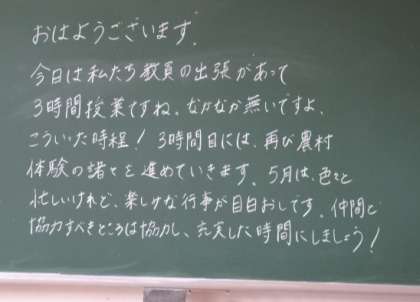 おはようございます。
今日は私たち教員の出張があって
3時間授業ですね。なかなか無いですよ、
こういった時程！3時間目には、再び農村
体験の諸々を進めていきます。5月は、色々と
忙しいけれど、楽しみな行事が目白おしです。仲間と
協力すべきところは協力し、充実した時間にしましょう！